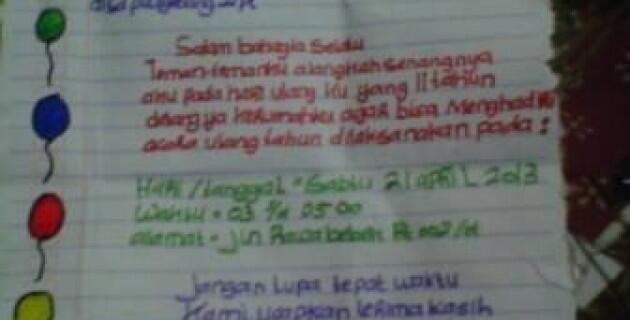 Salam bahagia Selalu
Teman-temanku alangkah senangnya
aku pada hari ulang ku yang 11 tahun
datang ya kerumahku agar bisa Menghadiri
acara ulang tahun dilaksanakan pada :
Hari / tanggal = Sabtu 21 april 2013
Waktu = 03 s/d 05 00
alamat = jln Rawa bebek Rt
Jangan Lupa tepat waktu
Kami ucapkan terima kasih